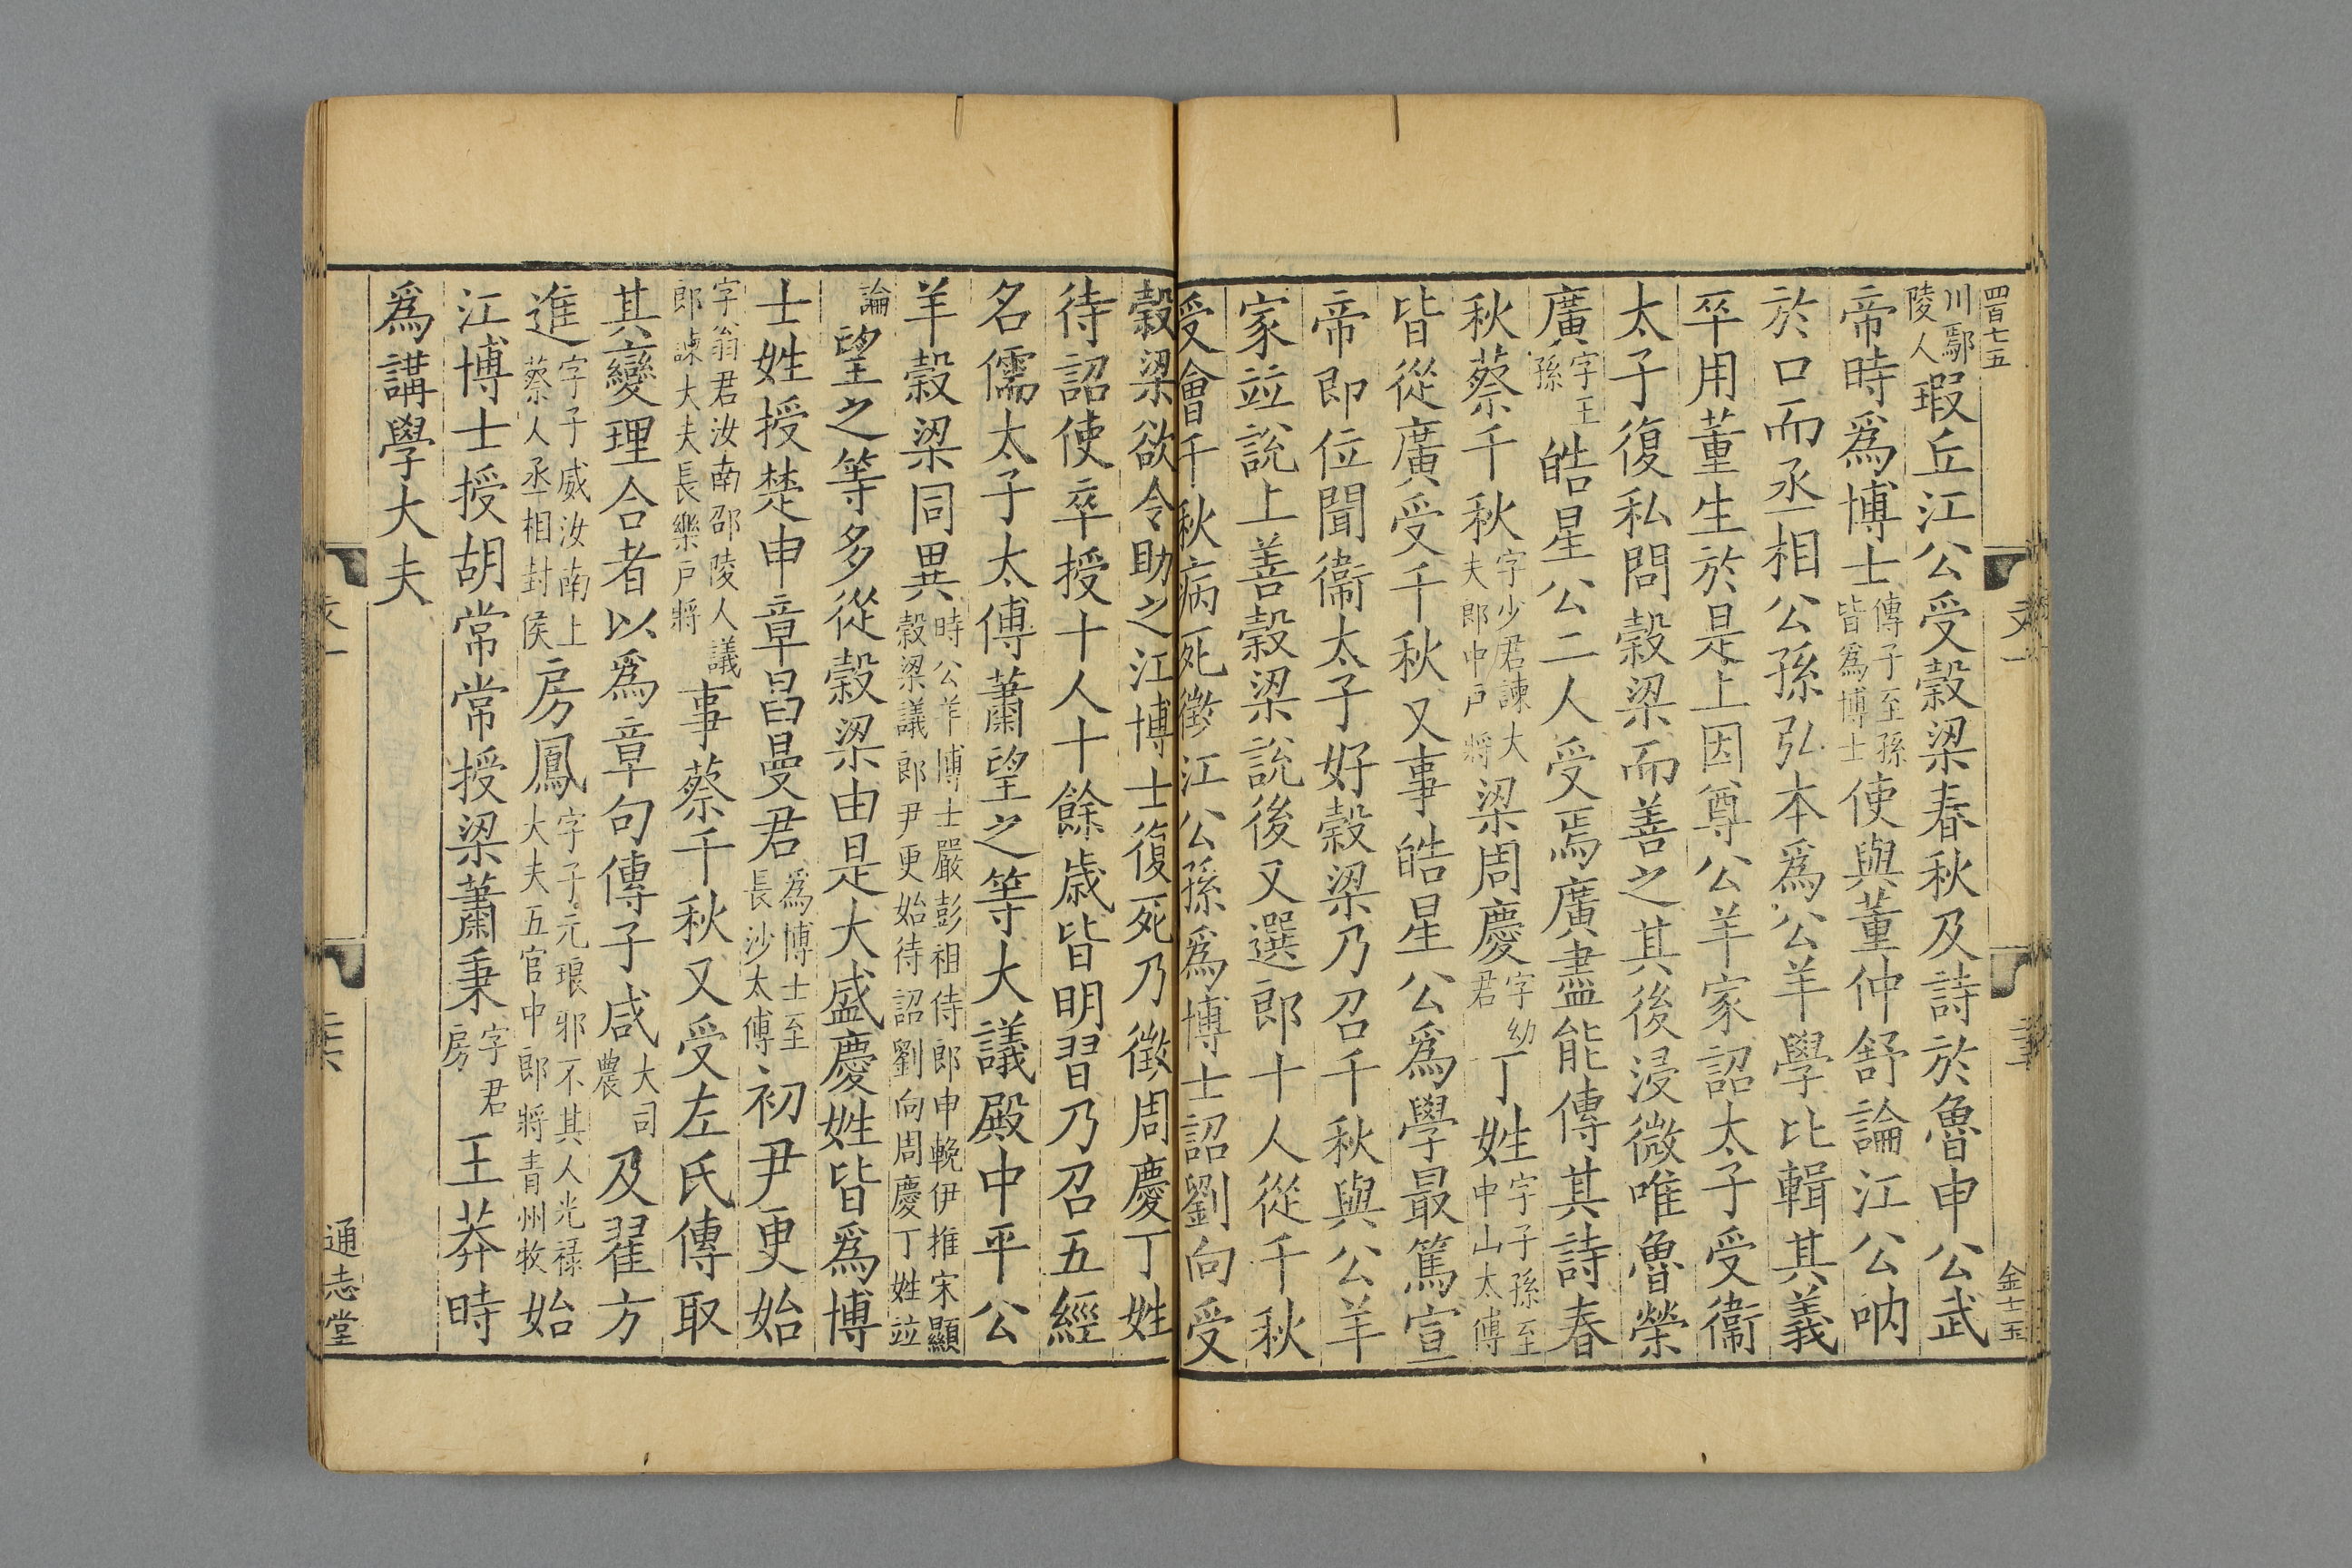 四百七五
文一
金士玉
川鄢陵人瑕丘江公受穀梁春秋及詩於魯申公武
帝時爲博士傳子至孫皆爲博士使與董仲舒論江公吶
於口而丞相公孫弘本爲公羊學比輯其義
卒用董生於是上因尊公羊家詔太子受衞
太子復私問穀梁而善之其後浸微唯魯榮
廣字王孫皓星公二人受焉廣盡能傳其詩春
秋蔡千秋字少君諫大夫郎中戶將梁周慶字幼君丁姓字子孫至中山太傅
皆從廣受千秋又事皓星公爲學最篤宣
帝即位聞衞太子好穀梁乃召千秋與公羊
家竝說上善穀梁說後又選郎十人從千秋
受會千秋病死徵江公孫爲博士詔劉向受
穀梁欲令助之江博士復死乃徵周慶丁姓
待詔使卒授十人十餘歲皆明習乃召五經
名儒太子太傅蕭望之等大議殿中平公
羊穀梁同異時公羊博士嚴彭祖侍郎申輓伊推宋顯穀梁議郎尹更始待詔劉向周慶丁姓竝
論望之等多從穀梁由是大盛慶姓皆爲博
士姓授楚申章昌曼君爲博士至長沙太傅初尹更始
字翁君汝南邵陵人議郎諫大夫長樂戶將事蔡千秋又受左氏傳取
其變理合者以爲章句傳子咸大司農及翟方
進字子威汝南上蔡人丞相封侯房鳳字子元琅邪不其人光祿大夫五官中郎將青州牧始
江博士授胡常常授梁蕭秉字君房王莽時
爲講學大夫
通志堂